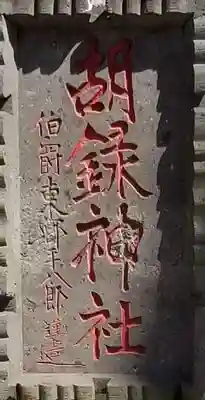 胡録神社
伯爵東郷平八郎謹書